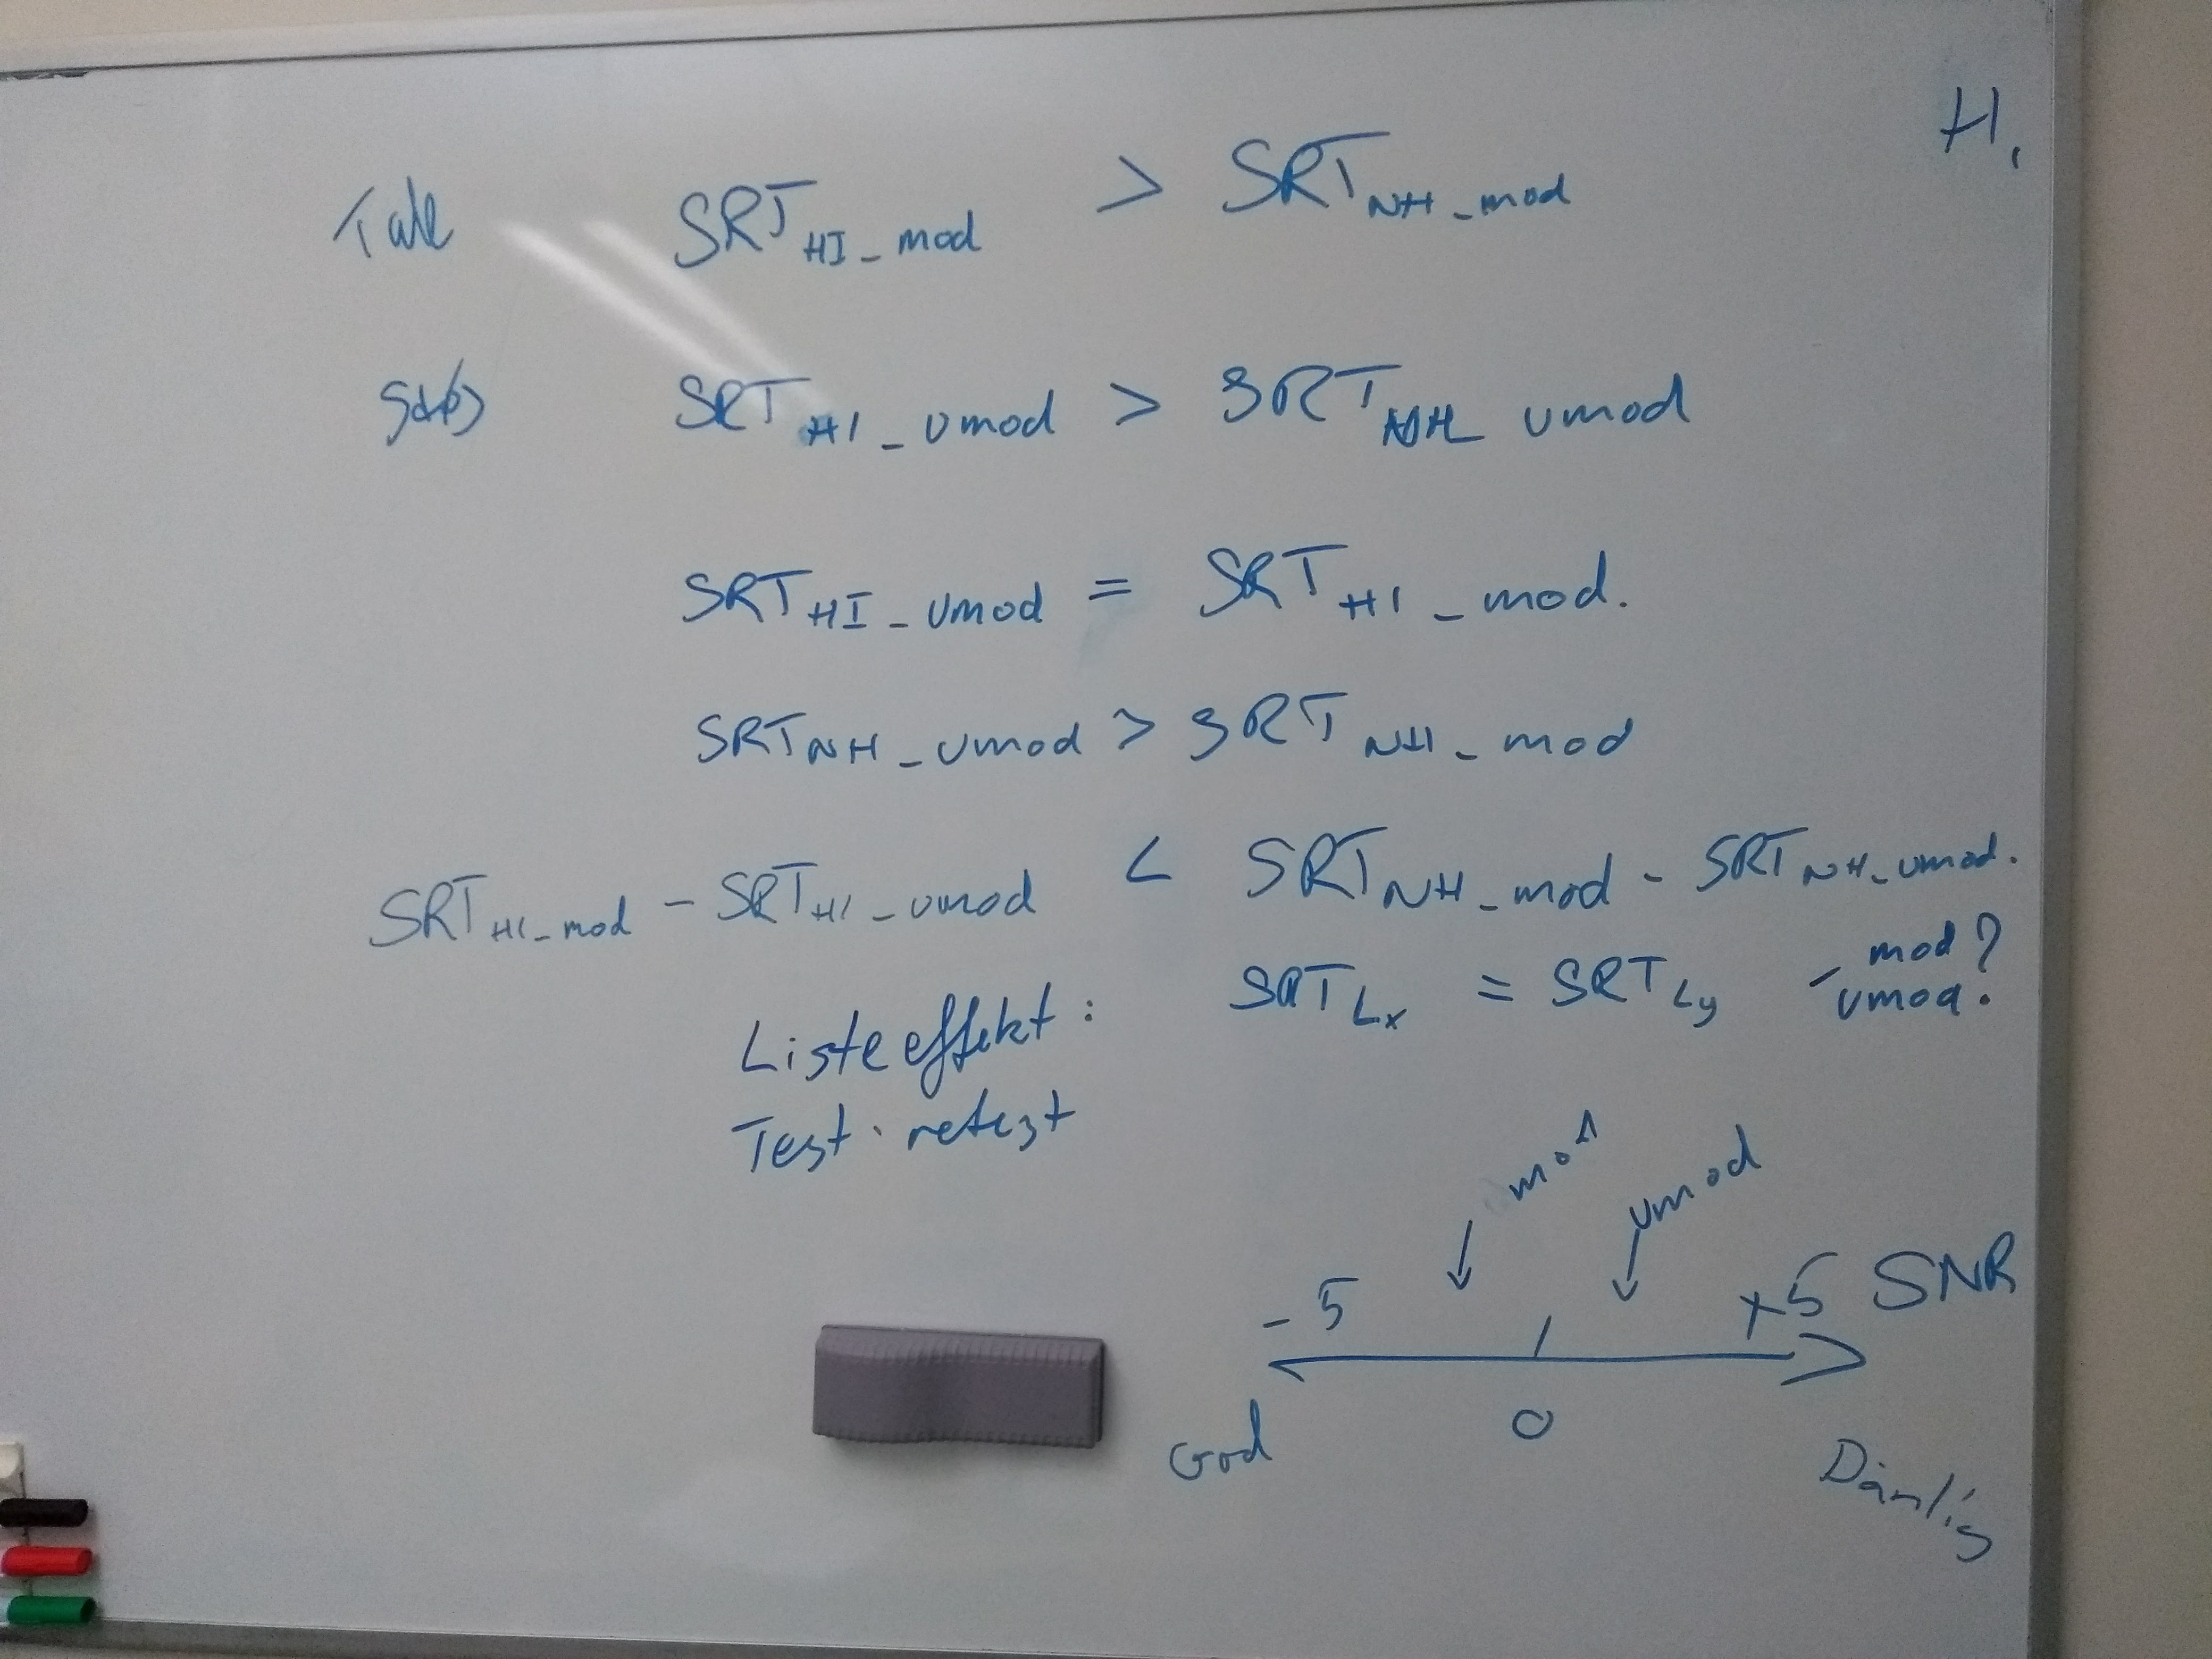 H₁
Tale SRT HI_mod > SRT NH_mod
SRT HI_umod > SRT NH_umod
SRT HI_umod = SRT HI_mod.
SRT NH_umod > SRT NH_mod
SRT HI_mod - SRT HI_umod < SRT NH_mod - SRT NH_umod.
Listeeffekt: SRT Lx = SRT Ly - mod? umod?
Test-retest
mod umod
-5 +5 SNR
0
God Dårlig